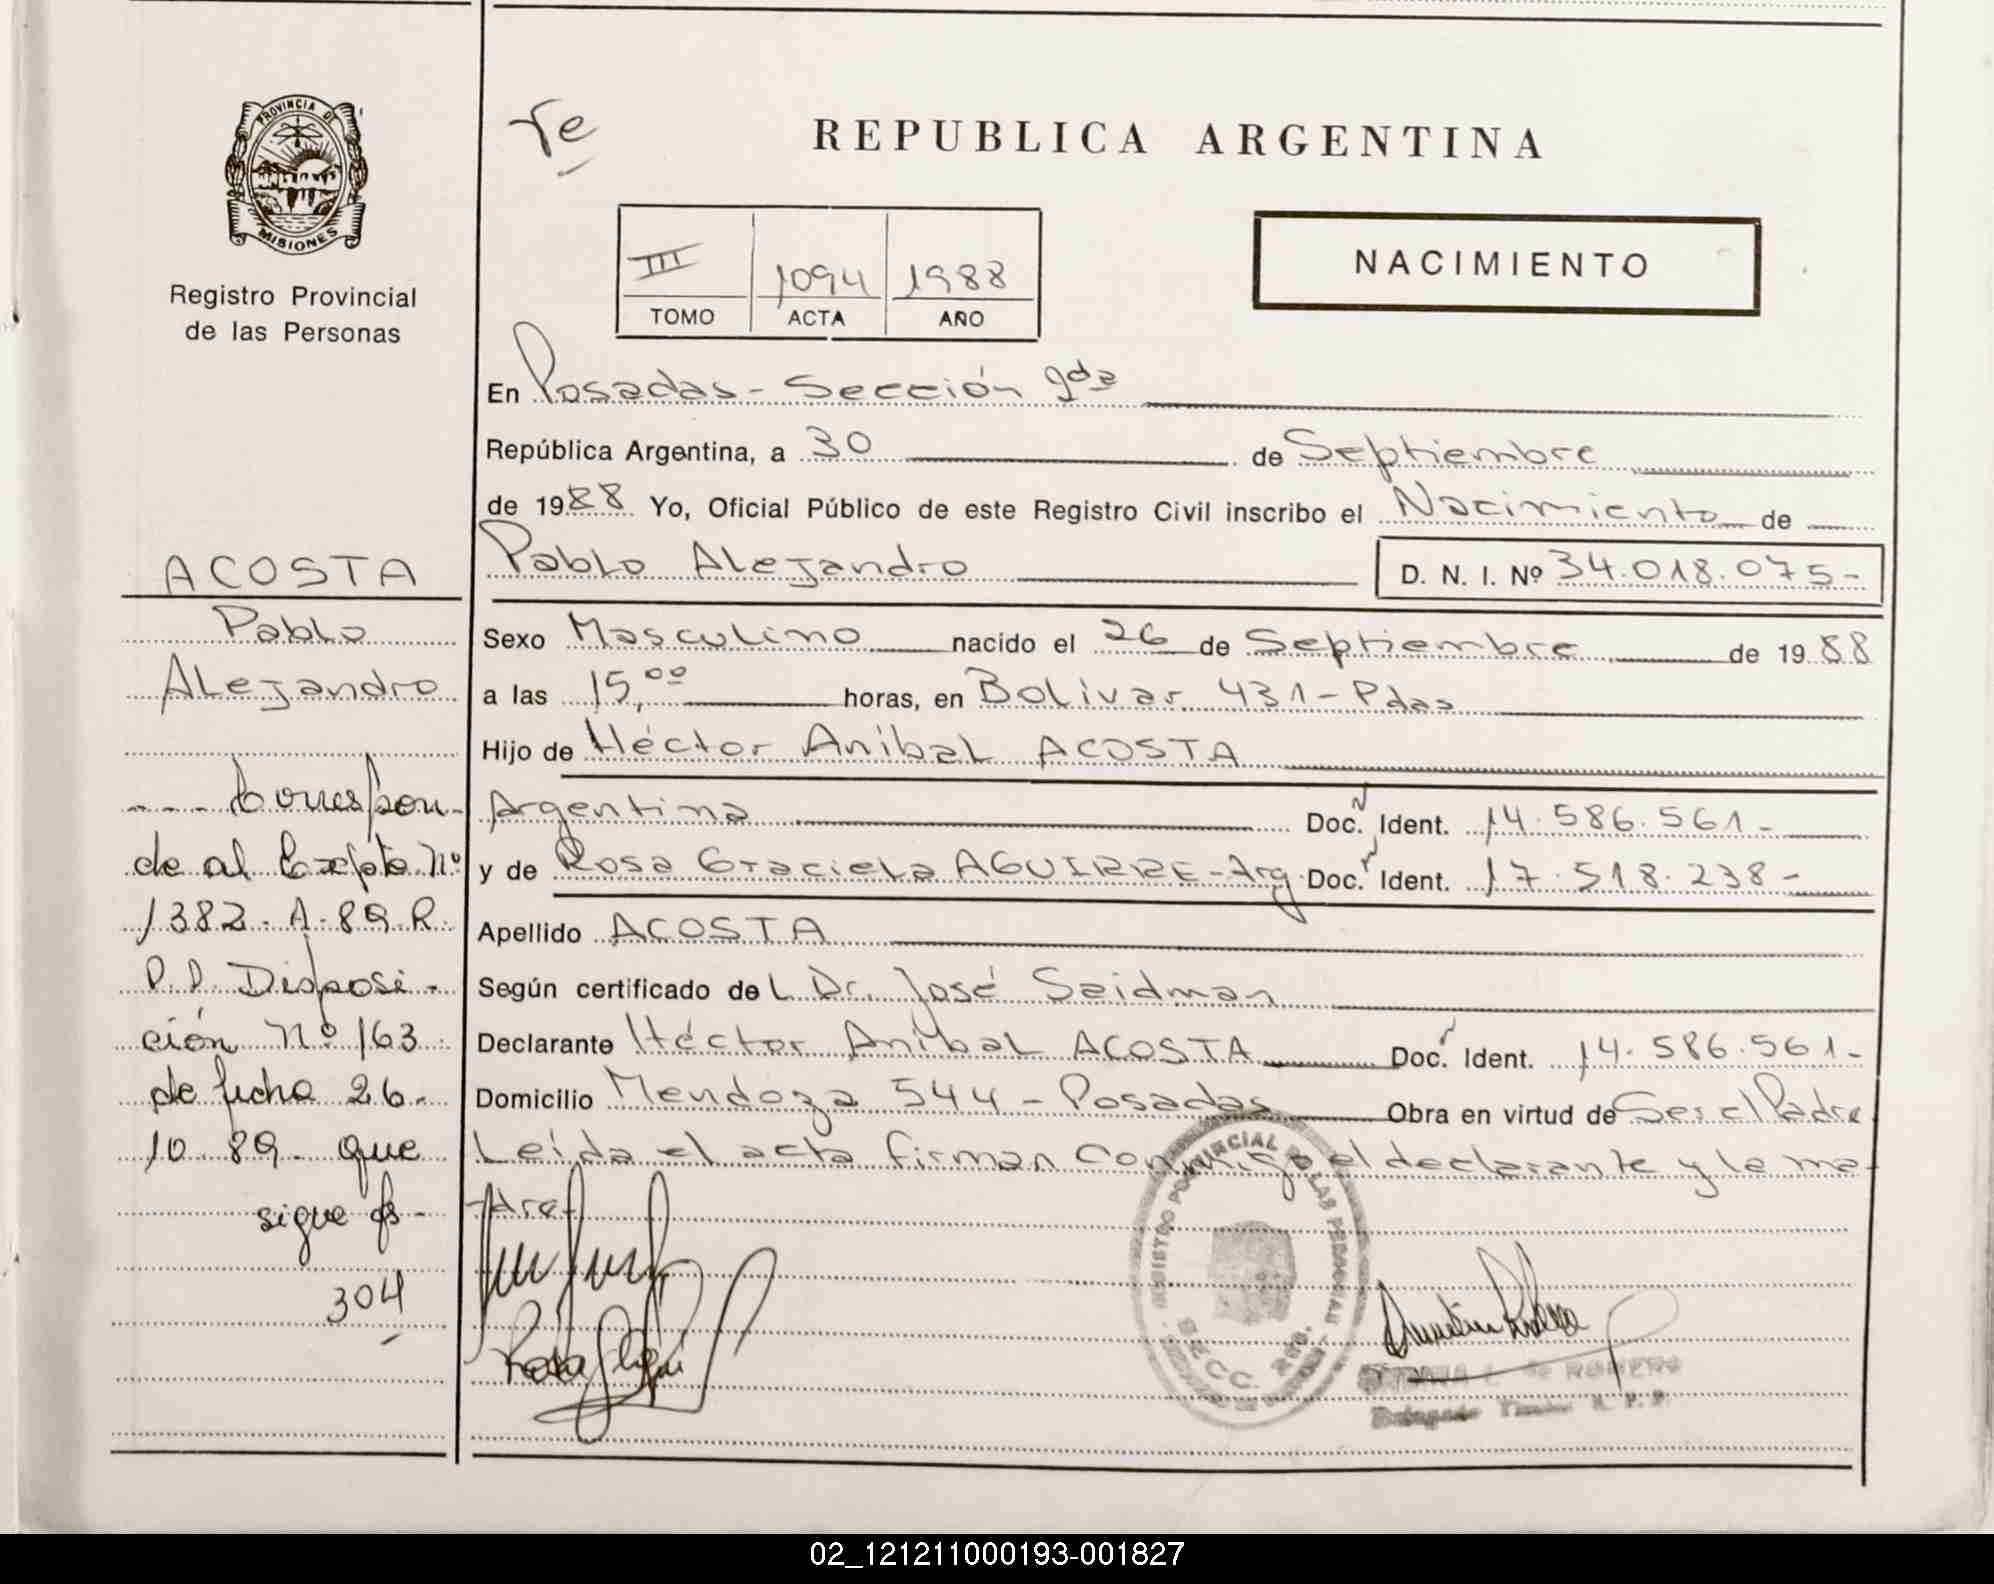 PROVINCIA DE
MISIONES
Registro Provincial
de las Personas
REPUBLICA ARGENTINA
III 1094 1988
TOMO ACTA AÑO
NACIMIENTO
En Posadas - Sección 2da
República Argentina, a 30 de Septiembre
de 1988 Yo, Oficial Público de este Registro Civil inscribo el Nacimiento de
Pablo Alejandro D. N. I. Nº 34.018.075-
Sexo Masculino nacido el 26 de Septiembre de 1988
a las 15,00 horas, en Bolivar 431 - Pdas
Hijo de Héctor Aníbal ACOSTA
Argentina Doc. Ident. 14.586.561-
y de Rosa Graciela AGUIRRE - Arg Doc. Ident. 17.518.238-
Apellido ACOSTA
Según certificado del Dr. José Seidman
Declarante Héctor Aníbal ACOSTA Doc. Ident. 14.586.561-
Domicilio Mendoza 544 - Posadas Obra en virtud de Ser el Padre
Leída el acta firman conmigo el declarante y la ma-
dre
ACOSTA
Pablo
Alejandro
--- Correspon-
de al Expte Nº
1382. A. 89. R.
P.P. Disposi-
ción Nº 163
de fecha 26-
10-89- que
sigue fs-
304
REGISTRO PROVINCIAL DE LAS PERSONAS
SECC. 2da.
de ROMERO
Delegado Titular R. P. P.
02_121211000193-001827